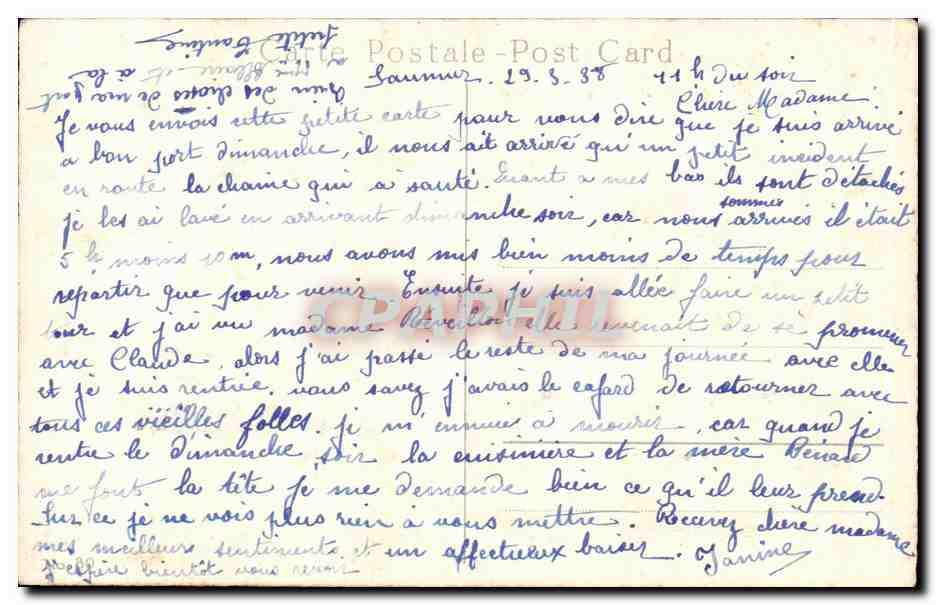 Carte Postale - Post Card
Saumur. 29-3-38 11h du soir
Chère Madame.
Je vous envois cette petite carte pour vous dire que je suis arrivé
a bon port dimanche, il nous ait arrivé qu'un petit incident
en route la chaine qui a sauté. Quant a mes bas ils sont détachés
je les ai lavé en arrivant dimanche soir, car nous sommes arrivés il était
5 h moins 10m, nous avons mis bien moins de temps pour
repartir que pour venir. Ensuite je suis allée faire un petit
tour et j'ai vu madame Réveillon elle revenait de se promener
avec Claude, alors j'ai passé le reste de ma journée avec elle
et je suis rentrée. vous savez j'avais le cafard de retourner avec
tous ces vieilles folles. je m'ennuie à mourir, car quand je
rentre le dimanche soir la cuisinière et la mère Bénard
me font la tête je me demande bien ce qu'il leur prend.
Sur ce je ne vois plus rien à vous mettre. Recevez chère madame
mes meilleurs sentiments et un affectueux baiser. Janine
J'espère bientôt vous revoir
bien des choses de ma part
à Mme et à la
petite Tantine
CPARHII